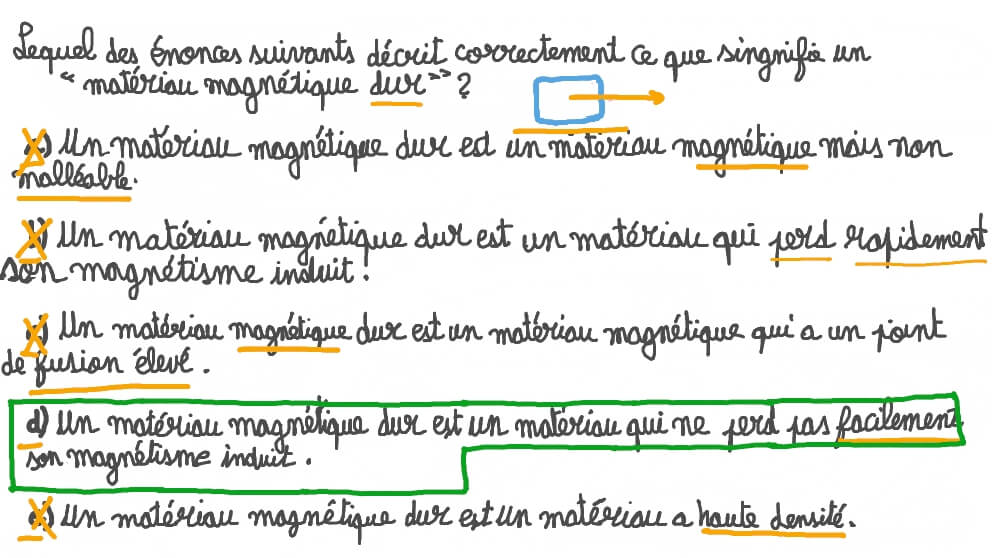 Lequel des Énonces suivants décrit correctement ce que singnifie un
“ matériau magnétique dur ” ?
a) Un materiau magnétique dur est un materiau magnétique mais non
malléable.
b) Un matériau magnétique dur est un matériau qui perd rapidement
son magnétisme induit.
c) Un matériau magnétique dur est un matériau magnétique qui a un point
de fusion élevé.
d) Un matériau magnétique dur est un materiau qui ne perd pas facilement
son magnétisme induit.
e) Un matériau magnétique dur est un matériau a haute densité.